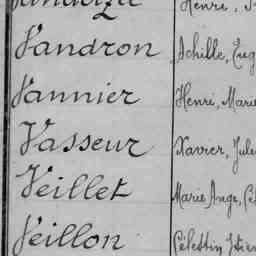 Henri,
Vandron Achille, Eug
Vannier Henri, Marie
Vasseur Xavier, Jule
Veillet Marie Ange, Cé
Veillon Célestin